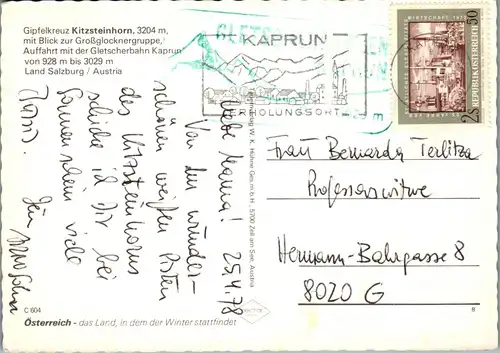 Gipfelkreuz Kitzsteinhorn, 3204 m,
mit Blick zur Großglocknergruppe,
Auffahrt mit der Gletscherbahn Kaprun
von 928 m bis 3029 m
Land Salzburg / Austria
KAPRUN
ERHOLUNGSORT
REPUBLIK ÖSTERREICH
25.4.78
Liebe Mama!
Von den wunder-
schönen weißen Pisten
des Kitzsteinhorns
schicke ich Dir bei
Sonnenschein viele
Dein
Frau Bernarda Terlitza
Professorswitwe
Hermann-Bahrgasse 8
8020 G
5700 Zell am See, Austria
C 604
8
Österreich - das Land, in dem der Winter stattfindet